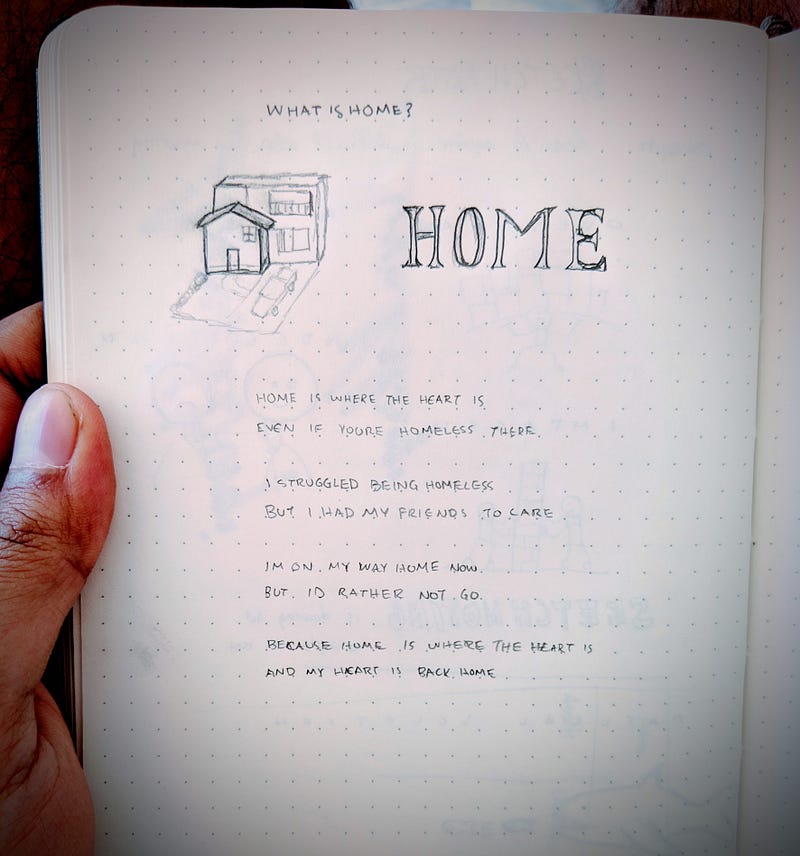 WHAT IS HOME?
HOME
HOME IS WHERE THE HEART IS
EVEN IF YOURE HOMELESS THERE.
I STRUGGLED BEING HOMELESS
BUT I HAD MY FRIENDS TO CARE
IM ON MY WAY HOME NOW.
BUT I'D RATHER NOT GO.
BECAUSE HOME IS WHERE THE HEART IS
AND MY HEART IS BACK HOME